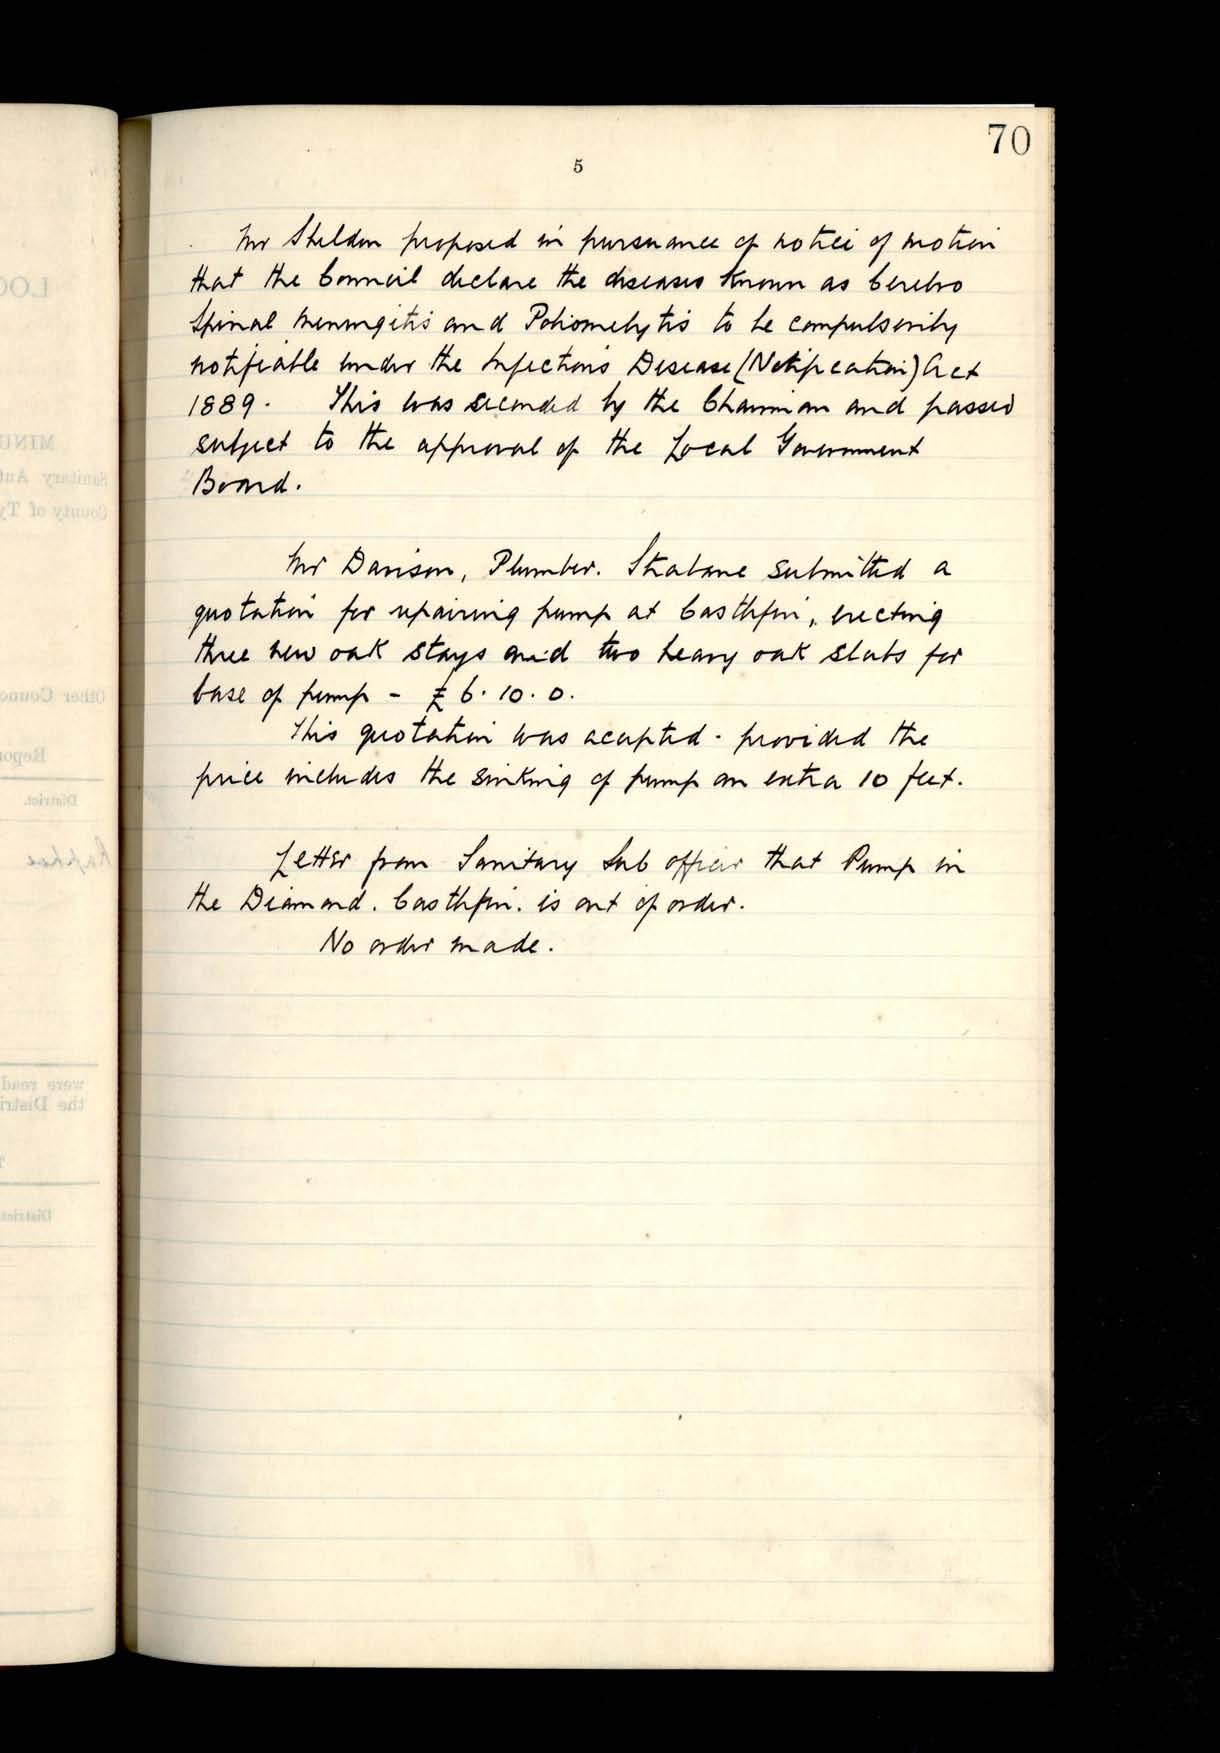 70
5
Mr Sheldon proposed in pursuance of notice of motion
that the Council declare the diseases known as Cerebro
Spinal Meningitis and Poliomelytis to be compulsorily
notifiable under the Infectious Disease (Notification) Act
1889. This was seconded by the Chairman and passed
subject to the approval of the Local Government
Board.
Mr Davison, Plumber. Strabane submitted a
quotation for repairing pump at Castlefin, erecting
three new oak stays and two heavy oak slabs for
base of pump - £6.10.0.
This quotation was accepted - provided the
price includes the sinking of pump an extra 10 feet.
Letter from Sanitary Sub officer that Pump in
the Diamond. Castlefin. is out of order.
No order made.